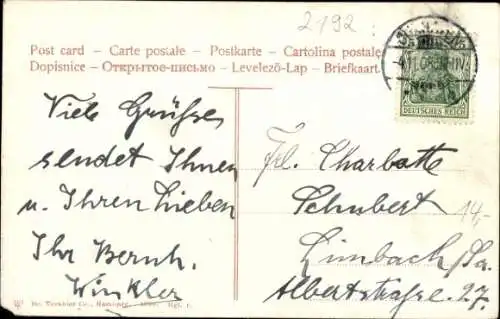 2192
Post card – Carte postale – Postkarte – Cartolina postale
Dopisnice – Открытое письмо – Levelező-Lap – Briefkaart
DEUTSCHES REICH
Viele Grüße
sendet Ihnen
u. Ihren Lieben
Ihr Bernh.
Winkler
Frl. Charlotte
Schubert
14,-
Limbach/Sa.
Albertstraße 27.
Co., Hamburg